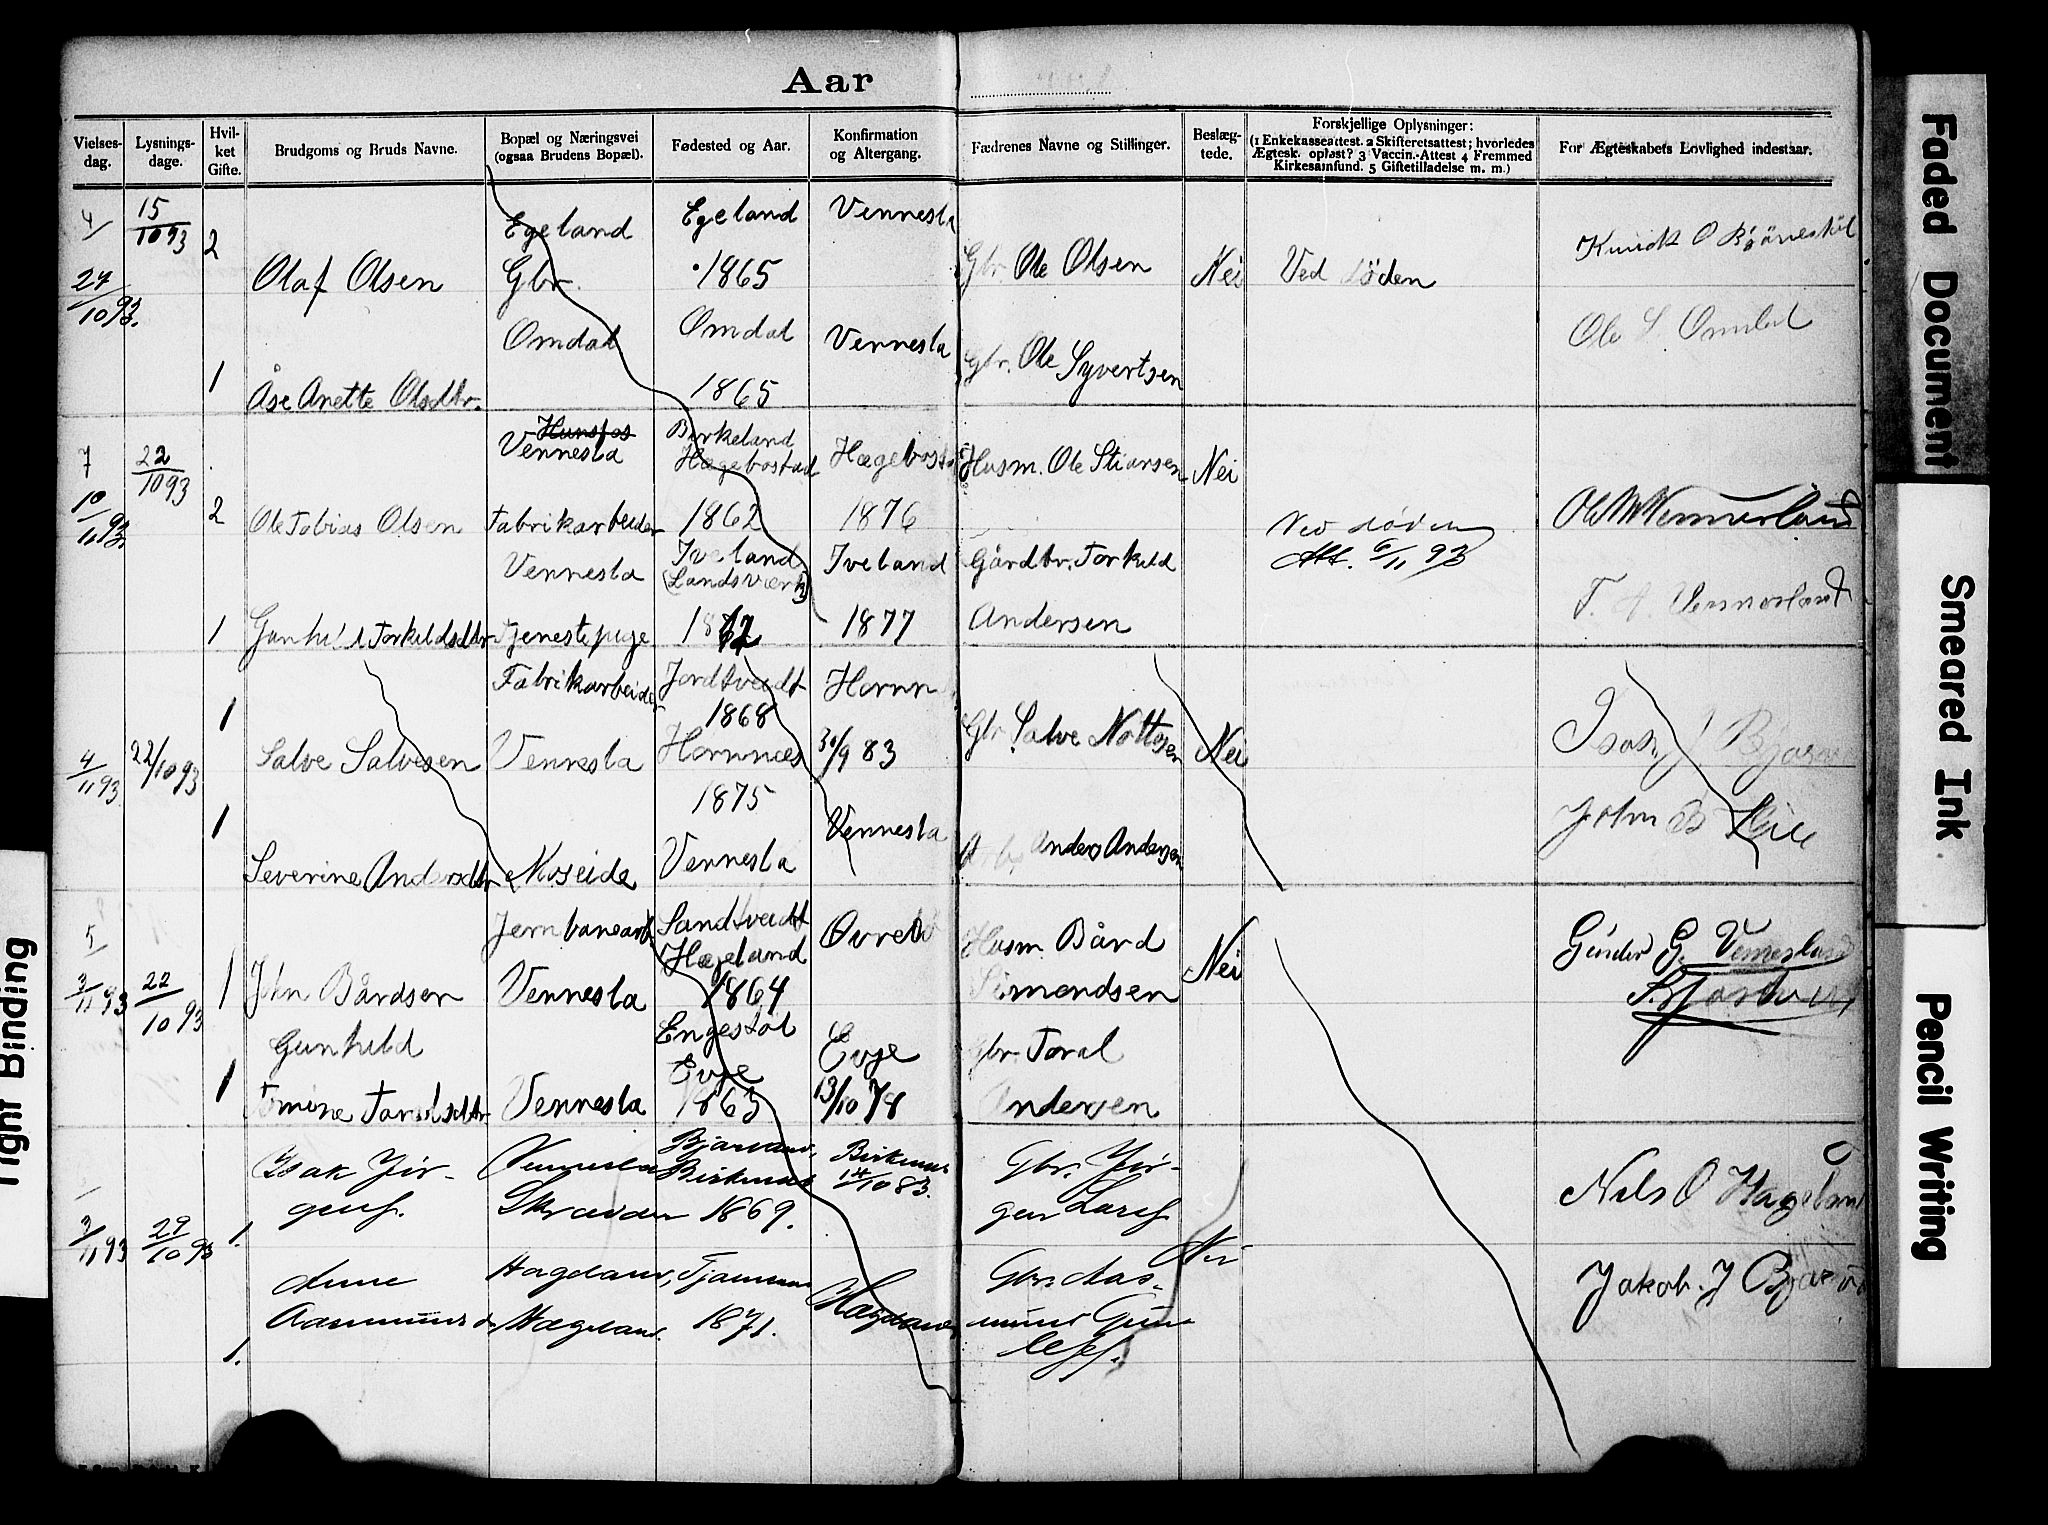 Aar
Vielses-dag.
Lysnings-dage.
Hvil-ket Gifte.
Brudgoms og Bruds Navne.
Bopæl og Næringsvei (ogsaa Brudens Bopæl).
Fødested og Aar.
Konfirmation og Altergang.
Fædrenes Navne og Stillinger.
Beslæg-tede.
Forskjellige Oplysninger:
(1 Enkekasseattest. 2 Skifteretsattest; hvorledes
Ægtesk. opløst? 3 Vaccin.-Attest 4 Fremmed
Kirkesamfund. 5 Giftetilladelse m. m.)
For Ægteskabets Lovlighed indestaar.
4/ 15/10 93 Egeland Egeland Vennesla
2 Knudt O Bjønestøl
27/10 93. Olaf Olsen Gbr. 1865 Gbr Ole Olsen Nei Ved Döden
Omdal Omdal Vennesla Ole S. Omdal
1 Åse Anette Olsdtr. 1865 Gbr. Ole Syvertsen
7 22/10 93 Hunsfos Vennesla Birkeland Hægebostad Hægebost Husm. Ole Stiansen Nei
10/11 93. 2 Ole Tobias Olsen Fabrikarbeider 1862 1876 Ved döden Att. 6/11 93 Ole Vennesland
Vennesla Iveland (Landsværk) Iveland Gårdbr. Torkild
1 Gunhild Torkildsdtr Tjenestepige 1862 1877 Andersen T. A. Vennesland
Fabrikarbeider Jordtveidt Hornn
1 1868
4/11 93 22/10 93 Salve Salvesen Vennesla Hornnes 30/9 83 Gbr Salve Nottesen Nei Isak J Bjorv
1875 John B
1 Vennesla
Severine Andersdtr Moseidé Vennesla Anders Andersen
5 Jernbanearb. Sandtveidt Hægeland Øvrebö Husm. Bård Gunder G. Vennesland
3/11 93 22/10 93 1 John Bårdsen Vennesla 1864 Simondsen Nei
Gunhild Engestöl Evje Gbr Toral
1 Tomine Toralsdtr Vennesla Evje 1863 13/10 78 Andersen
Isak Jör- Vennesla Bjorvand, Birkenes Birkenes 14/10 83. Gbr. Jör-
gens. Skrædder 1869. gen Lars Nils O Hageland
3/11 93 29/10 93 1.
Anne Hagelaus, Gbr. Aas- Nei Jakob. J Bjorv
Aasmunds d. Hægelan. 1871. Hægeland mund Gun
1. lefs.
Faded Document
Smeared Ink
Pencil Writing
Tight Binding